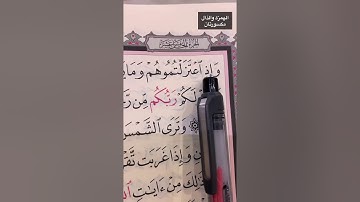 الهمزة والذال
مكسورتان
وَإِذِ ٱعْتَزَلْتُمُوهُمْ وَمَا
لَكُمْ رَبُّكُم مِّن
وَتَرَى ٱلشَّمْسَ
وَإِذَا غَرَبَت
ذَٰلِكَ مِنْ ءَايَٰتِ